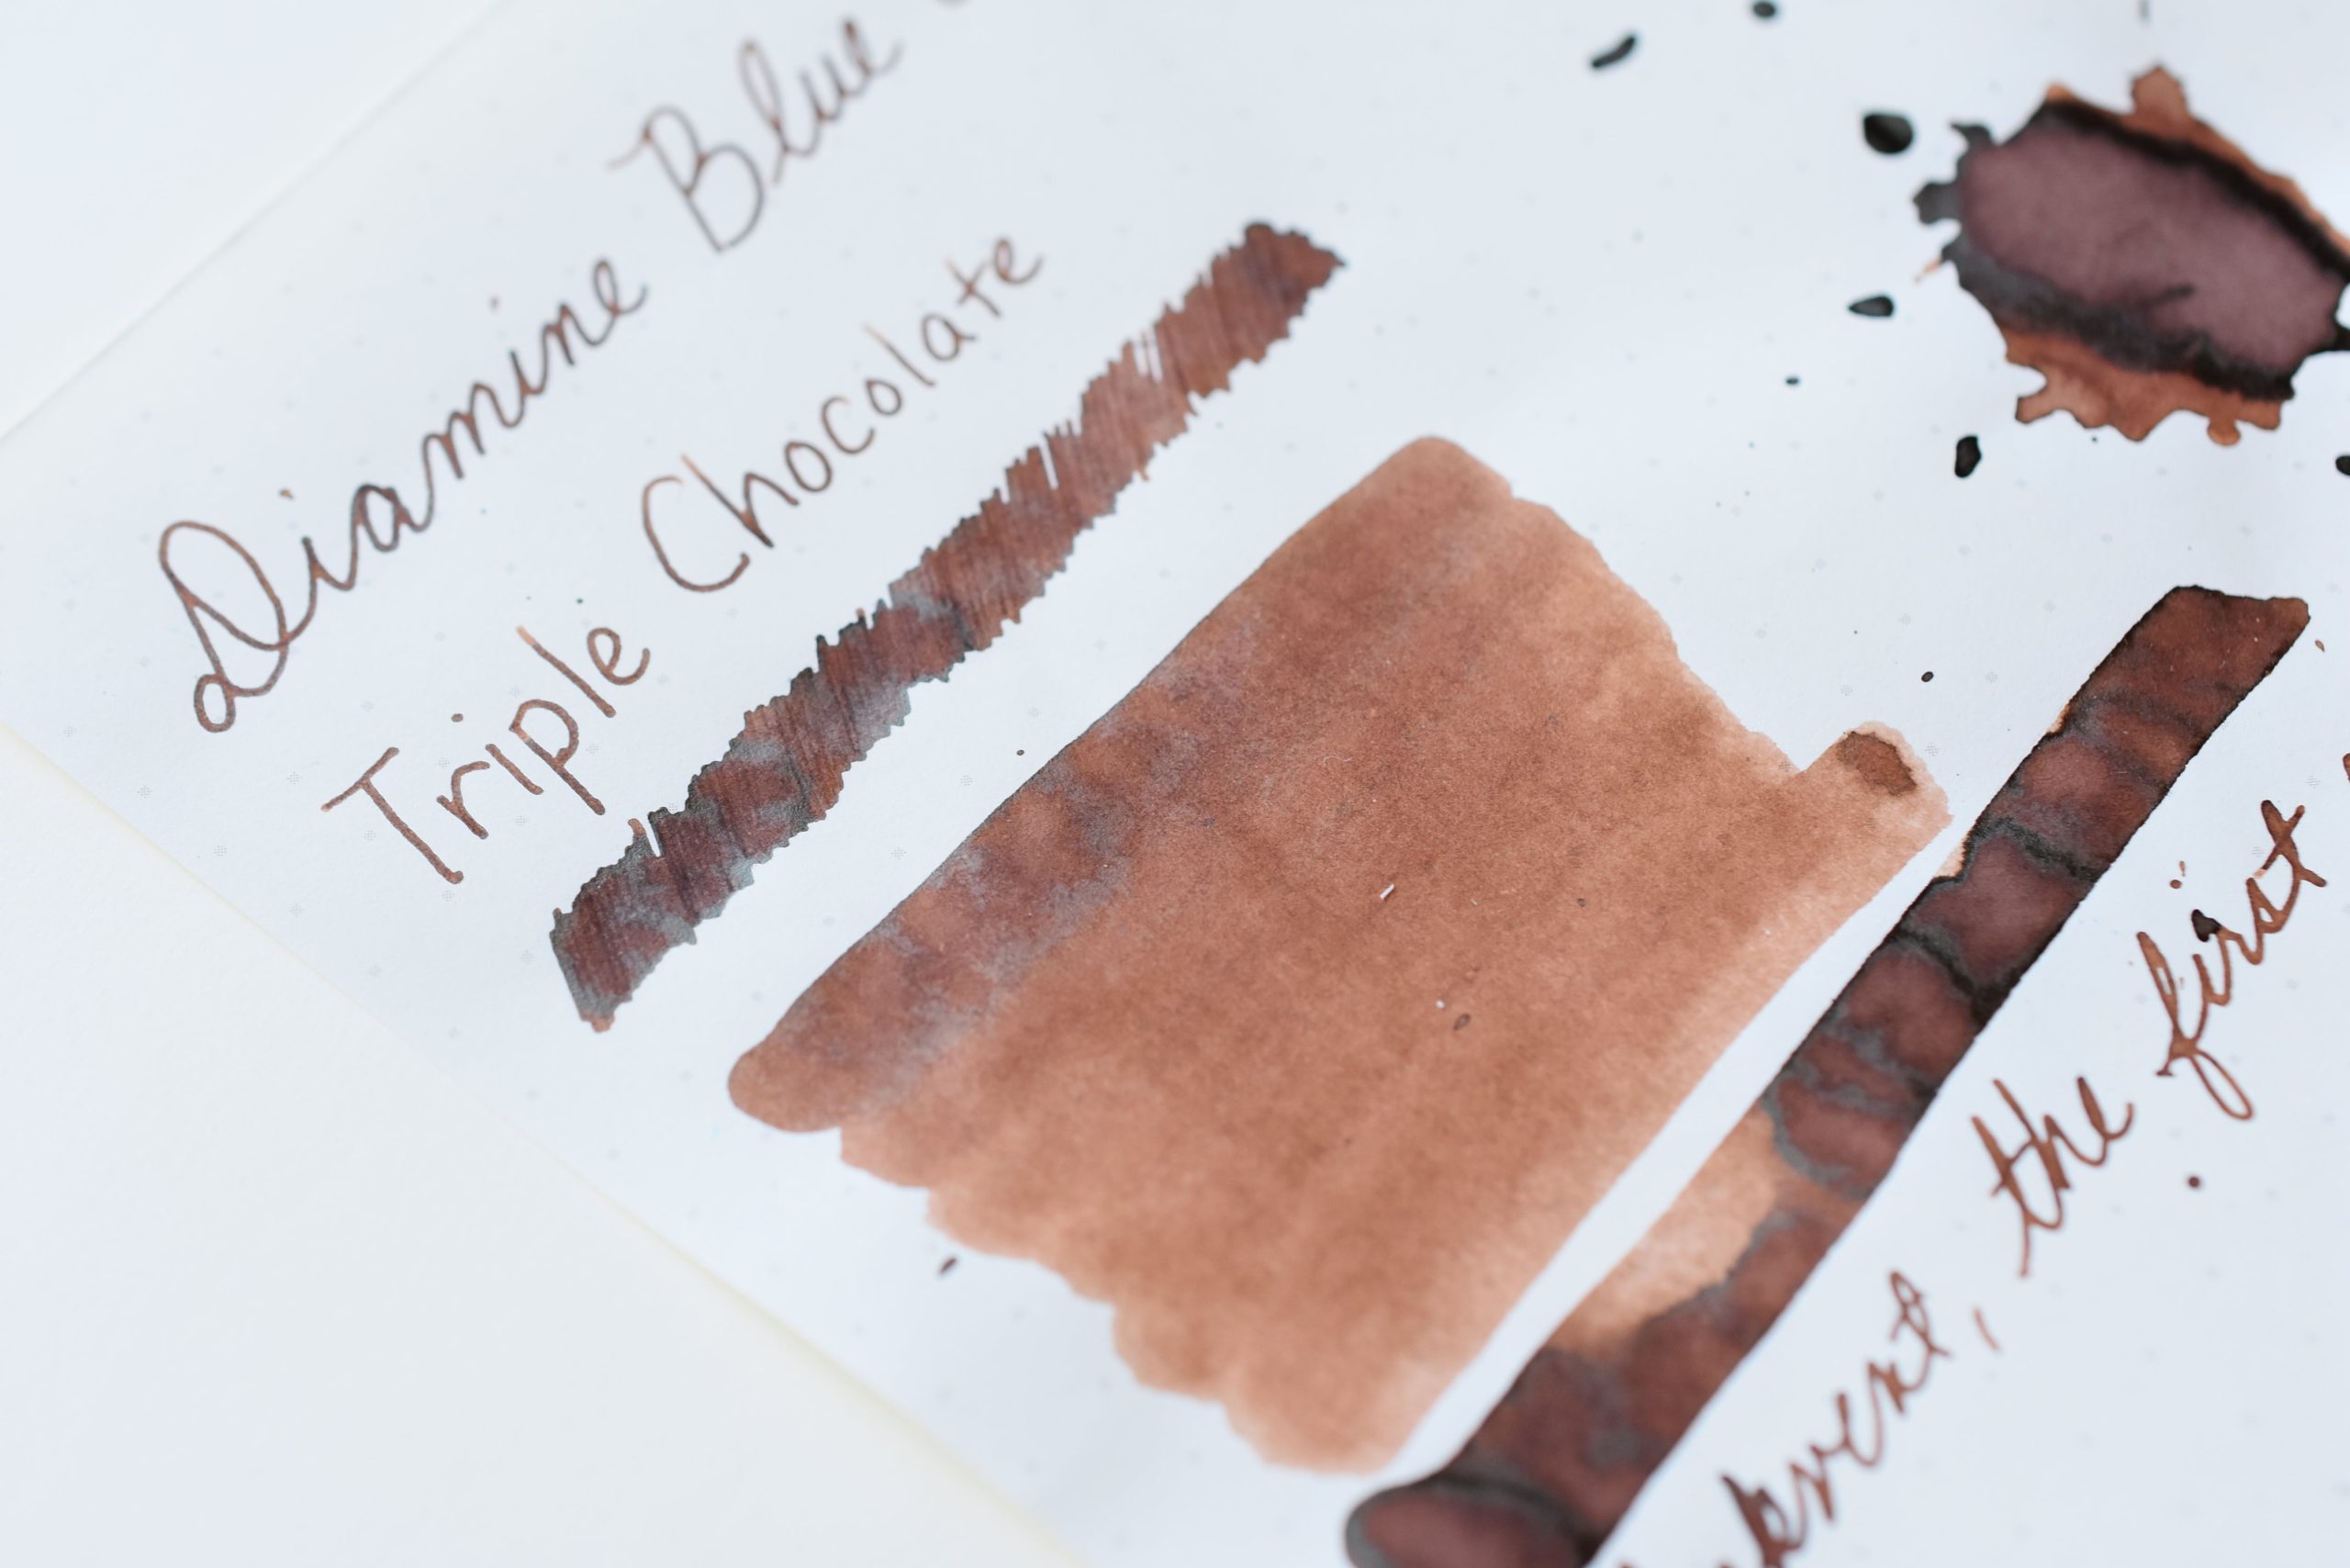 Diamine Blue
Triple Chocolate
the first